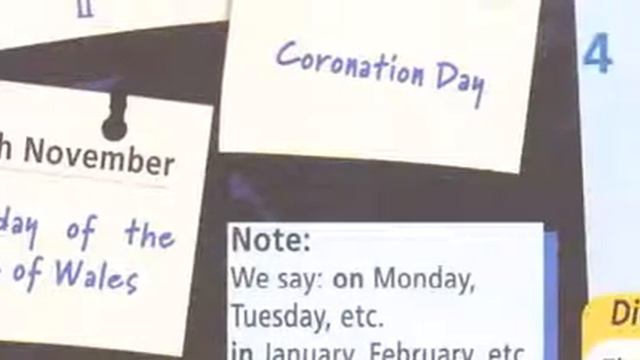 II
Coronation Day
4
h November
day of the
of Wales
Note:
We say: on Monday,
Tuesday, etc.
in January, February, etc
Di